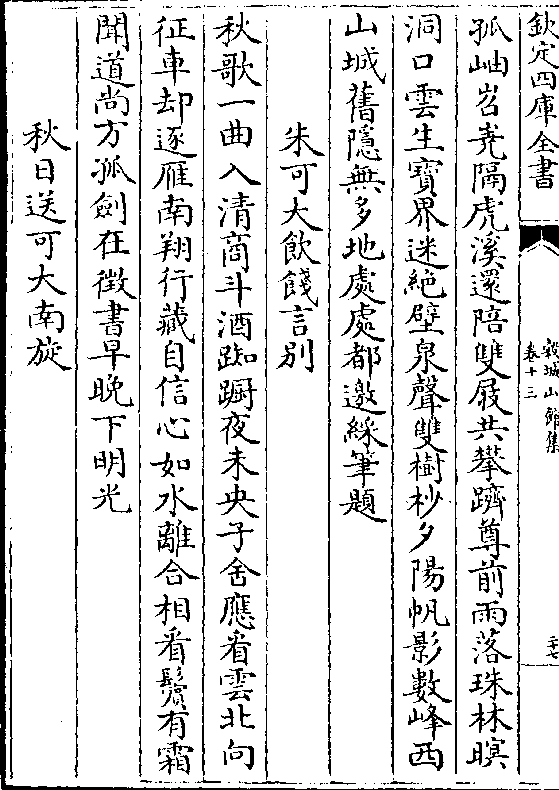 欽定四庫全書
穀城山館集
卷十三
二十七
孤岫岧堯隔虎溪還陪雙屐共攀躋尊前雨落珠林暝
洞口雲生寶界迷絶壁泉聲雙樹杪夕陽帆影數峰西
山城舊隱無多地處處都邀綵筆題
朱可大飲餞言别
秋歌一曲入清商斗酒踟蹰夜未央子舍應看雲北向
征車却逐雁南翔行藏自信心如水離合相看鬢有霜
聞道尚方孤劍在徵書早晚下明光
秋日送可大南旋